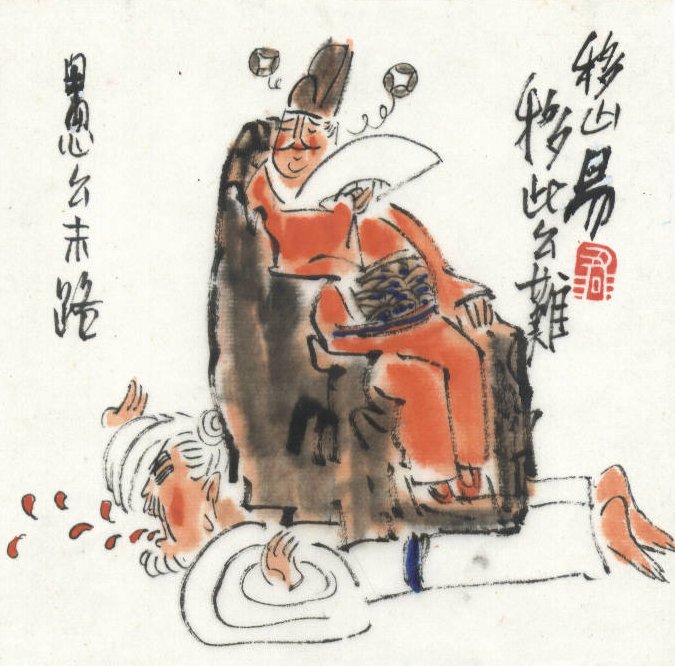 移山易
移此公難
愚公末路